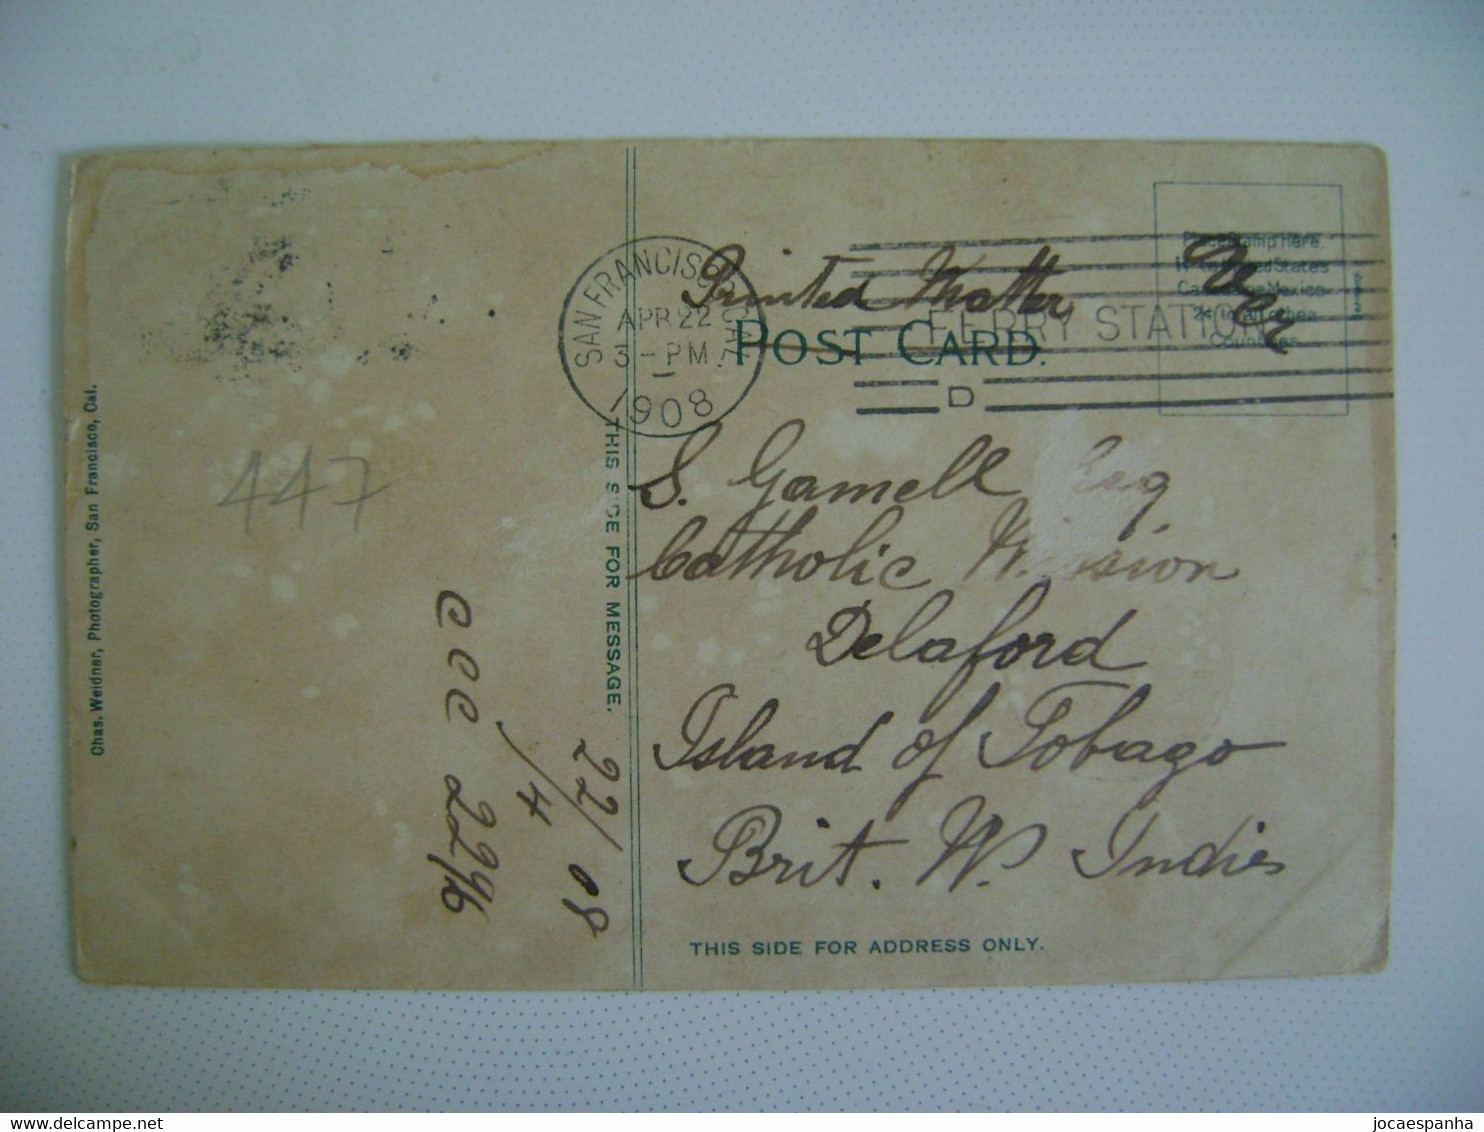 Chas. Weidner, Photographer, San Francisco, Cal.
447
ccc 2296
22/4/08
THIS SIDE FOR MESSAGE.
SAN FRANCISCO, CAL.
APR 22
3-PM
1908
Printed Matter
FERRY STATION
D
POST CARD.
Place Stamp here.
United States
Mexico
2c to all other
Countries.
S. Gamell Esq
Catholic Mission
Delaford
Island of Tobago
Brit. W. Indies
THIS SIDE FOR ADDRESS ONLY.
delcampe.net
jocaespanha